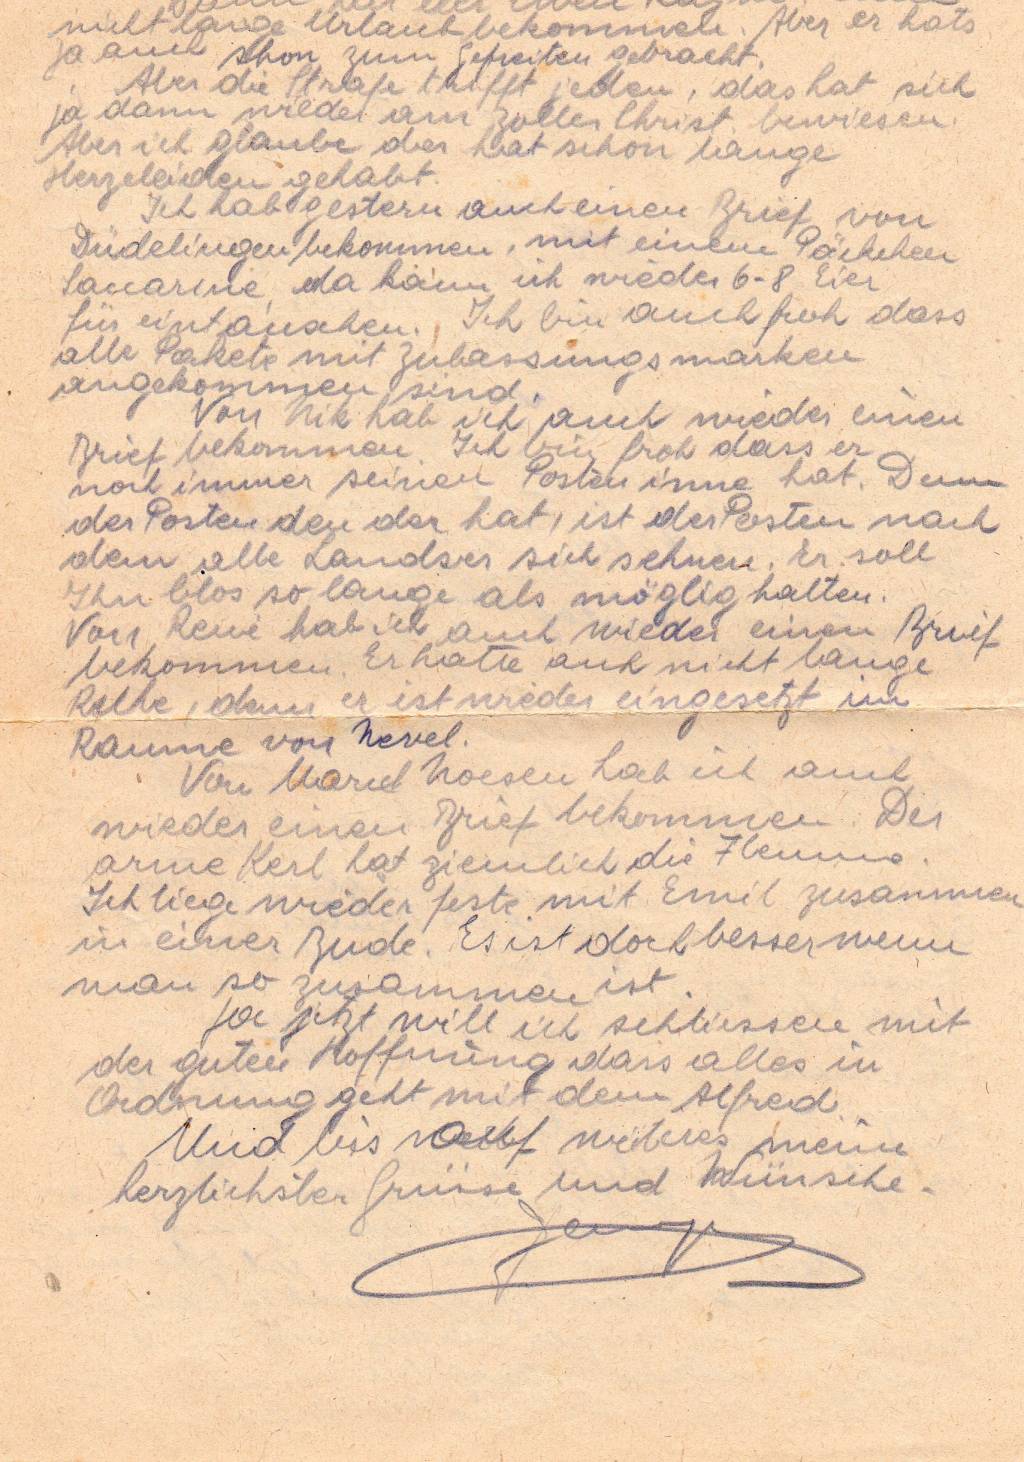 nicht lange Urlaub bekommen. Aber er hats
ja auch schon zum Gefreiten gebracht.
Aber die Strafe trifft jeden, das hat sich
ja dann wieder am Zoller Christ. bewiesen.
Aber ich glaube der hat schon lange
Herzeleiden gehabt.
Ich hab gestern auch einen Brief von
Düdelingen bekommen, mit einem Päckchen
Saccarine, da kann ich wieder 6-8 Eier
für eintauschen. Ich bin auch froh dass
alle Pakete mit Zulassungsmarken
angekommen sind.
Von Nik hab ich auch wieder einen
Brief bekommen. Ich bin froh dass er
noch immer seinen Posten inne hat. Denn
der Posten den der hat, ist der Posten nach
dem alle Landser sich sehnen. Er soll
Ihn blos so lange als möglig halten.
Von René hab ich auch wieder einen Brief
bekommen. Er hatte auch nicht lange
Ruhe, denn er ist wieder eingesetzt im
Raume von Nevel.
Von Marcel Noesen hab ich auch
wieder einen Brief bekommen. Der
arme Kerl hat ziemlich die
Ich liege wieder feste mit Emil zusammen
in einer Bude. Es ist doch besser wenn
man so zusammen ist.
Ja jetzt will ich schliessen mit
der guten Hoffnung dass alles in
Ordnung geht mit dem Alfred.
Und bis auf weiteres meine
herzlichster Grüsse und Wünsche.